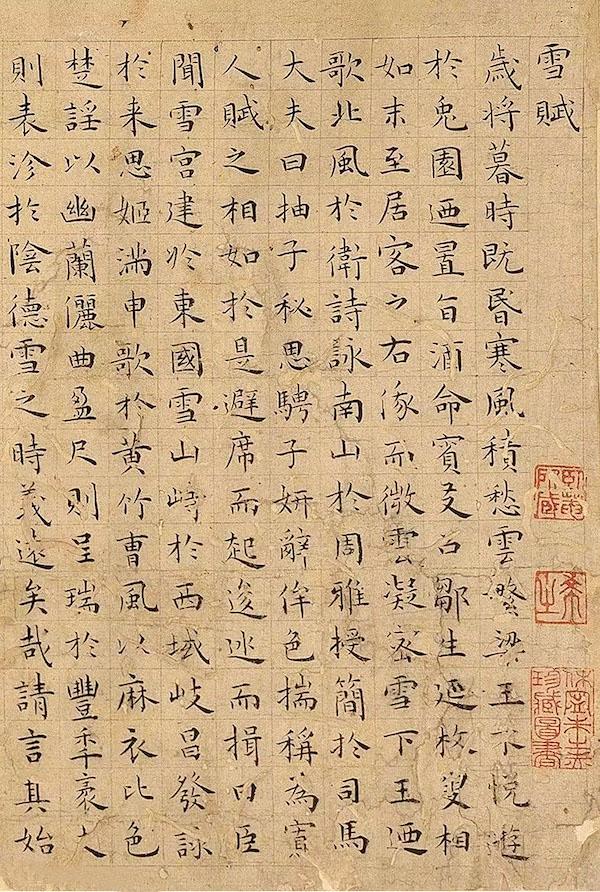 雪賦
歲将暮時既昏寒風積愁雲繁梁王不悅遊
於兔園迺置旨酒命賓友召鄒生延枚叟相
如末至居客之右俄而微凝密雪下王迺
歌北風於衛詩詠南山於周雅授簡於司馬
大夫曰抽子秘思騁子妍辭侔色揣稱為寡
人賦之相如於是避席而起逡巡而揖曰臣
聞雪宮建於東國雪山峙於西域岐昌發詠
於来思姬滿申歌於黃竹曹風以麻衣比色
楚謠以幽蘭儷曲盈尺則呈瑞於豐年袤丈
則表沴於陰德雪之時義遠矣哉請言其始